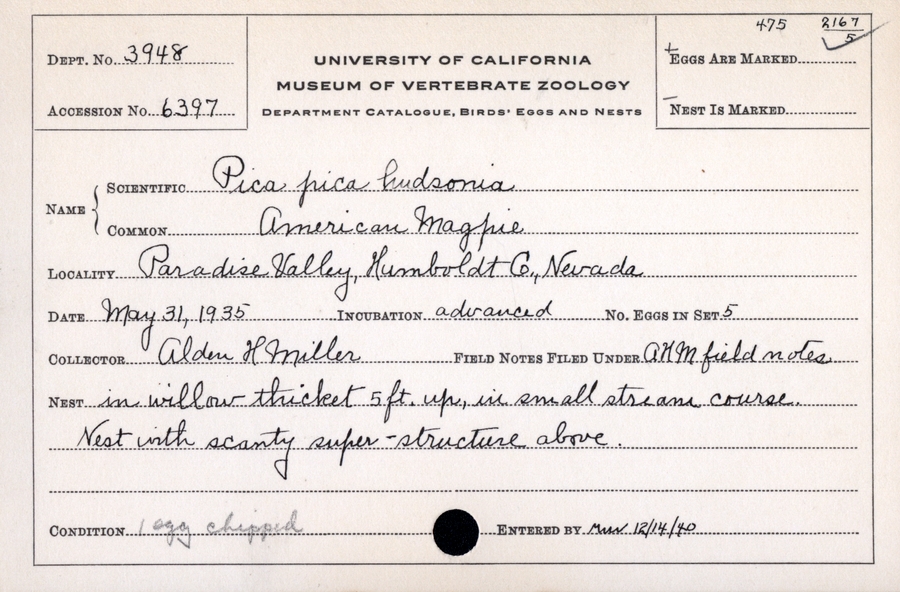 475 2167/5
DEPT. No. 3948
UNIVERSITY OF CALIFORNIA
+ EGGS ARE MARKED
MUSEUM OF VERTEBRATE ZOOLOGY
ACCESSION No. 6397
DEPARTMENT CATALOGUE, BIRDS' EGGS AND NESTS
– NEST IS MARKED
NAME
SCIENTIFIC Pica pica hudsonia
COMMON American Magpie
LOCALITY Paradise Valley, Humboldt Co., Nevada
DATE May 31, 1935 INCUBATION advanced No. EGGS IN SET 5
COLLECTOR Alden H Miller FIELD NOTES FILED UNDER AHM field notes
NEST in willow thicket 5 ft. up, in small stream course.
Nest with scanty super-structure above.
CONDITION 1 egg chipped ENTERED BY 12/14/40